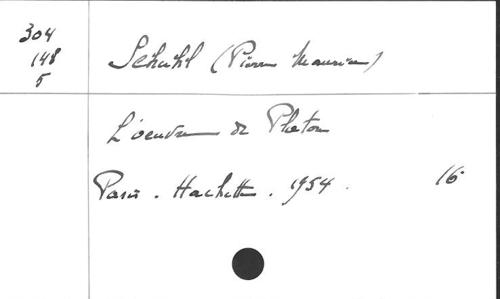 304
148
5
Schuhl (Pierre Maurice)
L'oeuvre de Platon
Paris. Hachette. 1954. 16°